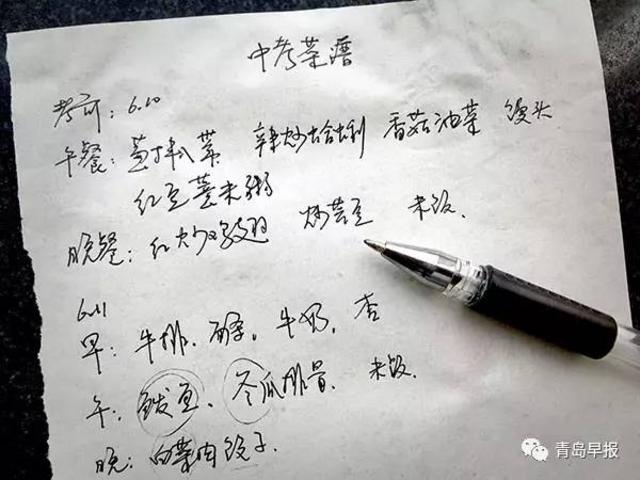 中考菜谱
考前：6.10
午餐： 辣炒蛤蜊 香菇油菜 馒头
红豆薏米粥
晚餐： 鸡翅 炒芸豆 米饭.
6.11
早：牛排. 牛奶. 杏
午：鲅鱼、冬瓜排骨、米饭.
晚：白菜肉饺子.
青岛早报